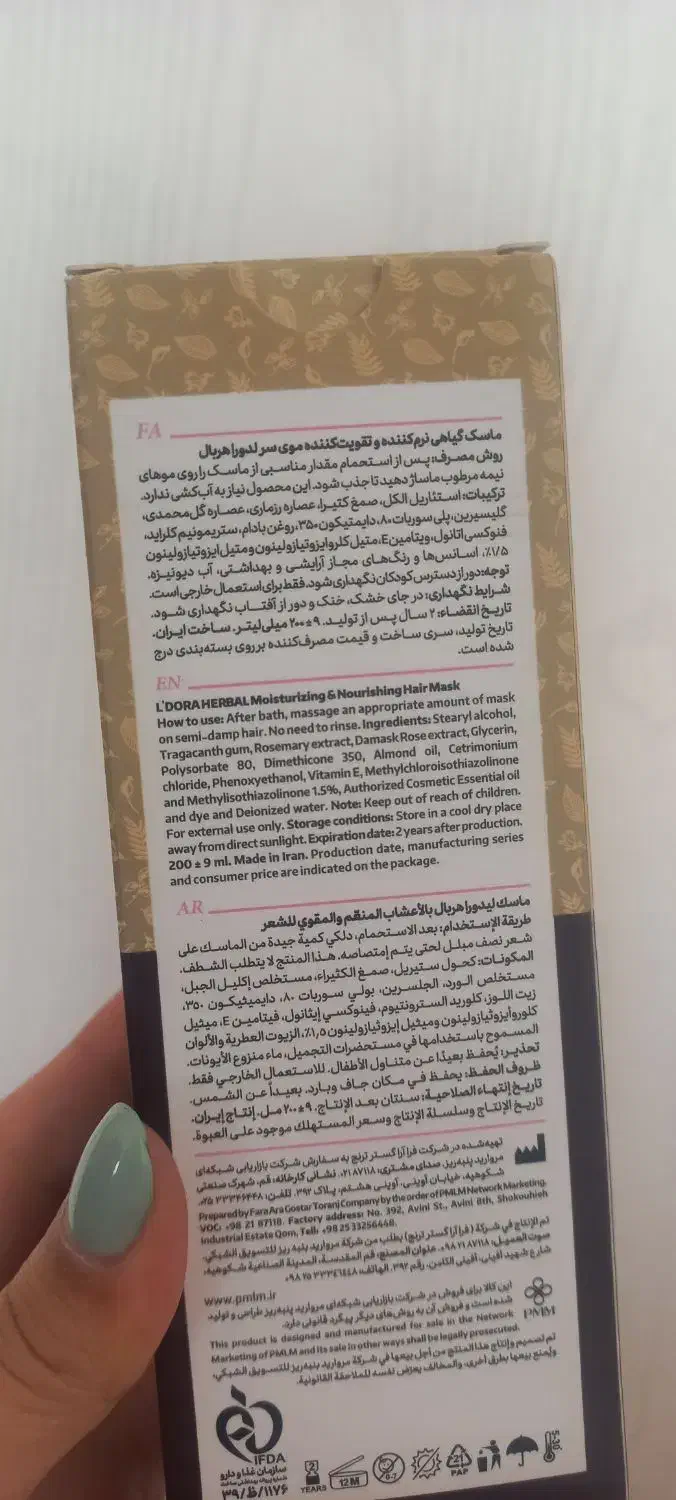 FA
ماسک گیاهی نرم‌کننده و تقویت‌کننده موی سر لدورا هربال
روش مصرف: پس از استحمام مقدار مناسبی از ماسک را روی موهای
نیمه مرطوب ماساژ دهید تا جذب شود. این محصول نیاز به آب‌کشی ندارد.
ترکیبات: استئاریل الکل، صمغ کتیرا، عصاره رزماری، عصاره گل‌محمدی،
گلیسیرین، پلی سوربات ۸۰، دایمتیکون ۳۵۰، روغن بادام، ستریمونیم کلراید،
فنوکسی اتانول، ویتامین E، متیل کلروایزوتیازولینون و متیل ایزوتیازولینون
۱/۵٪، اسانس‌ها و رنگ‌های مجاز آرایشی و بهداشتی، آب دیونیزه.
توجه: دور از دسترس کودکان نگهداری شود. فقط برای استعمال خارجی است.
شرایط نگهداری: در جای خشک، خنک و دور از آفتاب نگهداری شود.
تاریخ انقضاء: ۲ سال پس از تولید. ۹±۲۰۰ میلی‌لیتر. ساخت ایران.
تاریخ تولید، سری ساخت و قیمت مصرف‌کننده بر روی بسته‌بندی درج
شده است.
EN
L'DORA HERBAL Moisturizing & Nourishing Hair Mask
How to use: After bath, massage an appropriate amount of mask
on semi-damp hair. No need to rinse. Ingredients: Stearyl alcohol,
Tragacanth gum, Rosemary extract, Damask Rose extract, Glycerin,
Polysorbate 80, Dimethicone 350, Almond oil, Cetrimonium
chloride, Phenoxyethanol, Vitamin E, Methylchloroisothiazolinone
and Methylisothiazolinone 1.5%, Authorized Cosmetic Essential oil
and dye and Deionized water. Note: Keep out of reach of children.
For external use only. Storage conditions: Store in a cool dry place
away from direct sunlight. Expiration date: 2 years after production.
200 ± 9 ml. Made in Iran. Production date, manufacturing series
and consumer price are indicated on the package.
AR
ماسك ليدورا هربال بالأعشاب المنعّم والمقوي للشعر
طريقة الإستخدام: بعد الاستحمام، دلكي كمية جيدة من الماسك على
شعر نصف مبلل لحتى يتم إمتصاصه. هذا المنتج لا يتطلب الشطف.
المكونات: كحول ستيريل، صمغ الكثيراء، مستخلص إكليل الجبل،
مستخلص الورد، الجلسرين، بولي سوربات ۸۰، دايميثيكون ۳۵۰،
زيت اللوز، كلوريد السترونتيوم، فينوكسي إيثانول، فيتامين E، ميثيل
كلوروايزوثيازولينون وميثيل إيزوثيازولينون ۱,۵٪، الزيوت العطرية والألوان
المسموح باستخدامها في مستحضرات التجميل، ماء منزوع الأيونات.
تحذير: يُحفظ بعيدًا عن متناول الأطفال. للاستعمال الخارجي فقط.
ظروف الحفظ: يحفظ في مكان جاف وبارد. بعيداً عن الشمس.
تاريخ إنتهاء الصلاحية: سنتان بعد الإنتاج. ۹±۲۰۰ مل. إنتاج إيران.
تاريخ الإنتاج وسلسلة الإنتاج وسعر المستهلك موجود على العبوة.
تهیه‌شده در شرکت فرا آرا گستر ترنج به سفارش شرکت بازاریابی شبکه‌ای
مروارید پنبه‌ریز. صدای مشتری: ۰۲۱۸۷۱۱۸ نشانی کارخانه: قم، شهرک صنعتی
شکوهیه، خیابان آوینی، آوینی هشتم، پلاک ۳۹۲.
Prepared by Fara Ara Gostar Toranj Company by the order of PMLM Network Marketing.
VOC: +98 21 87118. Factory address: No. 392, Avini St., Avini 8th, Shokouhieh
Industrial Estate Qom, Tell: +982533256448.
تم الإنتاج في شركة (فرا آرا گستر ترنج) بطلب من شركة مرواريد بنبه ريز للتسويق الشبكي.
صوت العميل: ۹۸۲۱۸۷۱۱۸+ عنوان المصنع: قم المقدسة، المدينة الصناعية شكوهية،
شارع شهيد آفيني، آفيني الثامن، رقم ۳۹۲.
www.pmlm.ir
این کالا برای فروش در شرکت بازاریابی شبکه‌ای مروارید پنبه‌ریز طراحی و تولید
شده است و فروش آن به روش‌های دیگر پیگرد قانونی دارد.
PMLM
This product is dasigned and manufactured for sale in the Network
Marketing of PMLM and its sale in other ways shall be legally prosecuted.
تم تصميم وإنتاج هذا المنتج من أجل بيعها في شركة مرواريد بنبه ريز للتسويق الشبكي،
ويُمنع بيعها بطرق أخرى، والمخالف يعرّض نفسه للملاحقة القانونية.
IFDA
سازمان غذا و دارو
۳۹/ظ/۱۱۷۶
2
YEARS
12M
0-7
21
PAP
5-30°